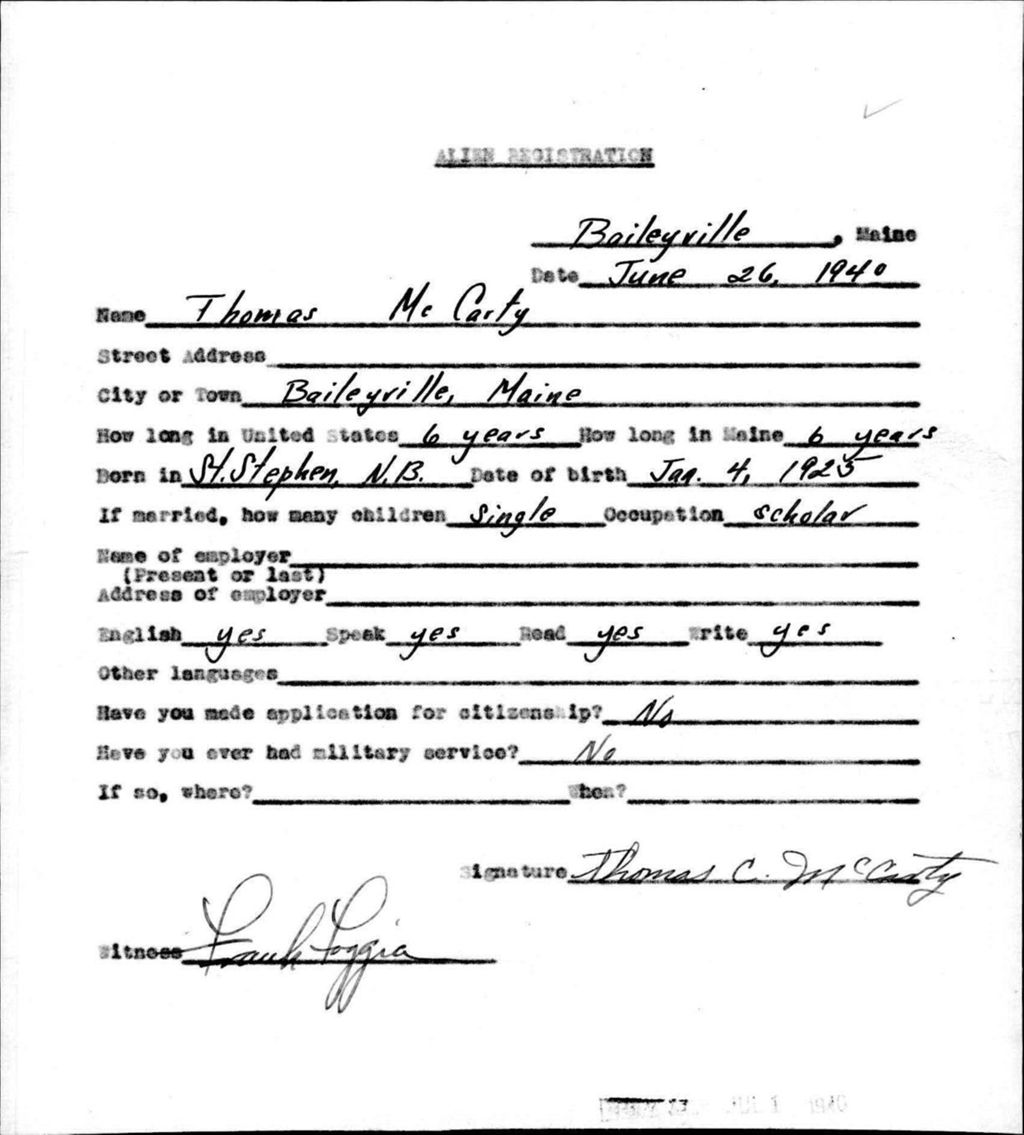 ALIEN REGISTRATION
Baileyville, Maine
Date June 26, 1940
Name Thomas Mc Carty
Street Address
City or Town Baileyville, Maine
How long in United States 6 years How long in Maine 6 years
Born in St. Stephen, N.B. Date of birth Jan. 4, 1925
If married, how many children Single Occupation Scholar
Name of employer
(Present or last)
Address of employer
English yes Speak yes Read yes Write yes
Other languages
Have you made application for citizenship? No
Have you ever had military service? No
If so, where? When?
Signature Thomas C. McCarty
Witness Frank Foggia
JUL 1 1940